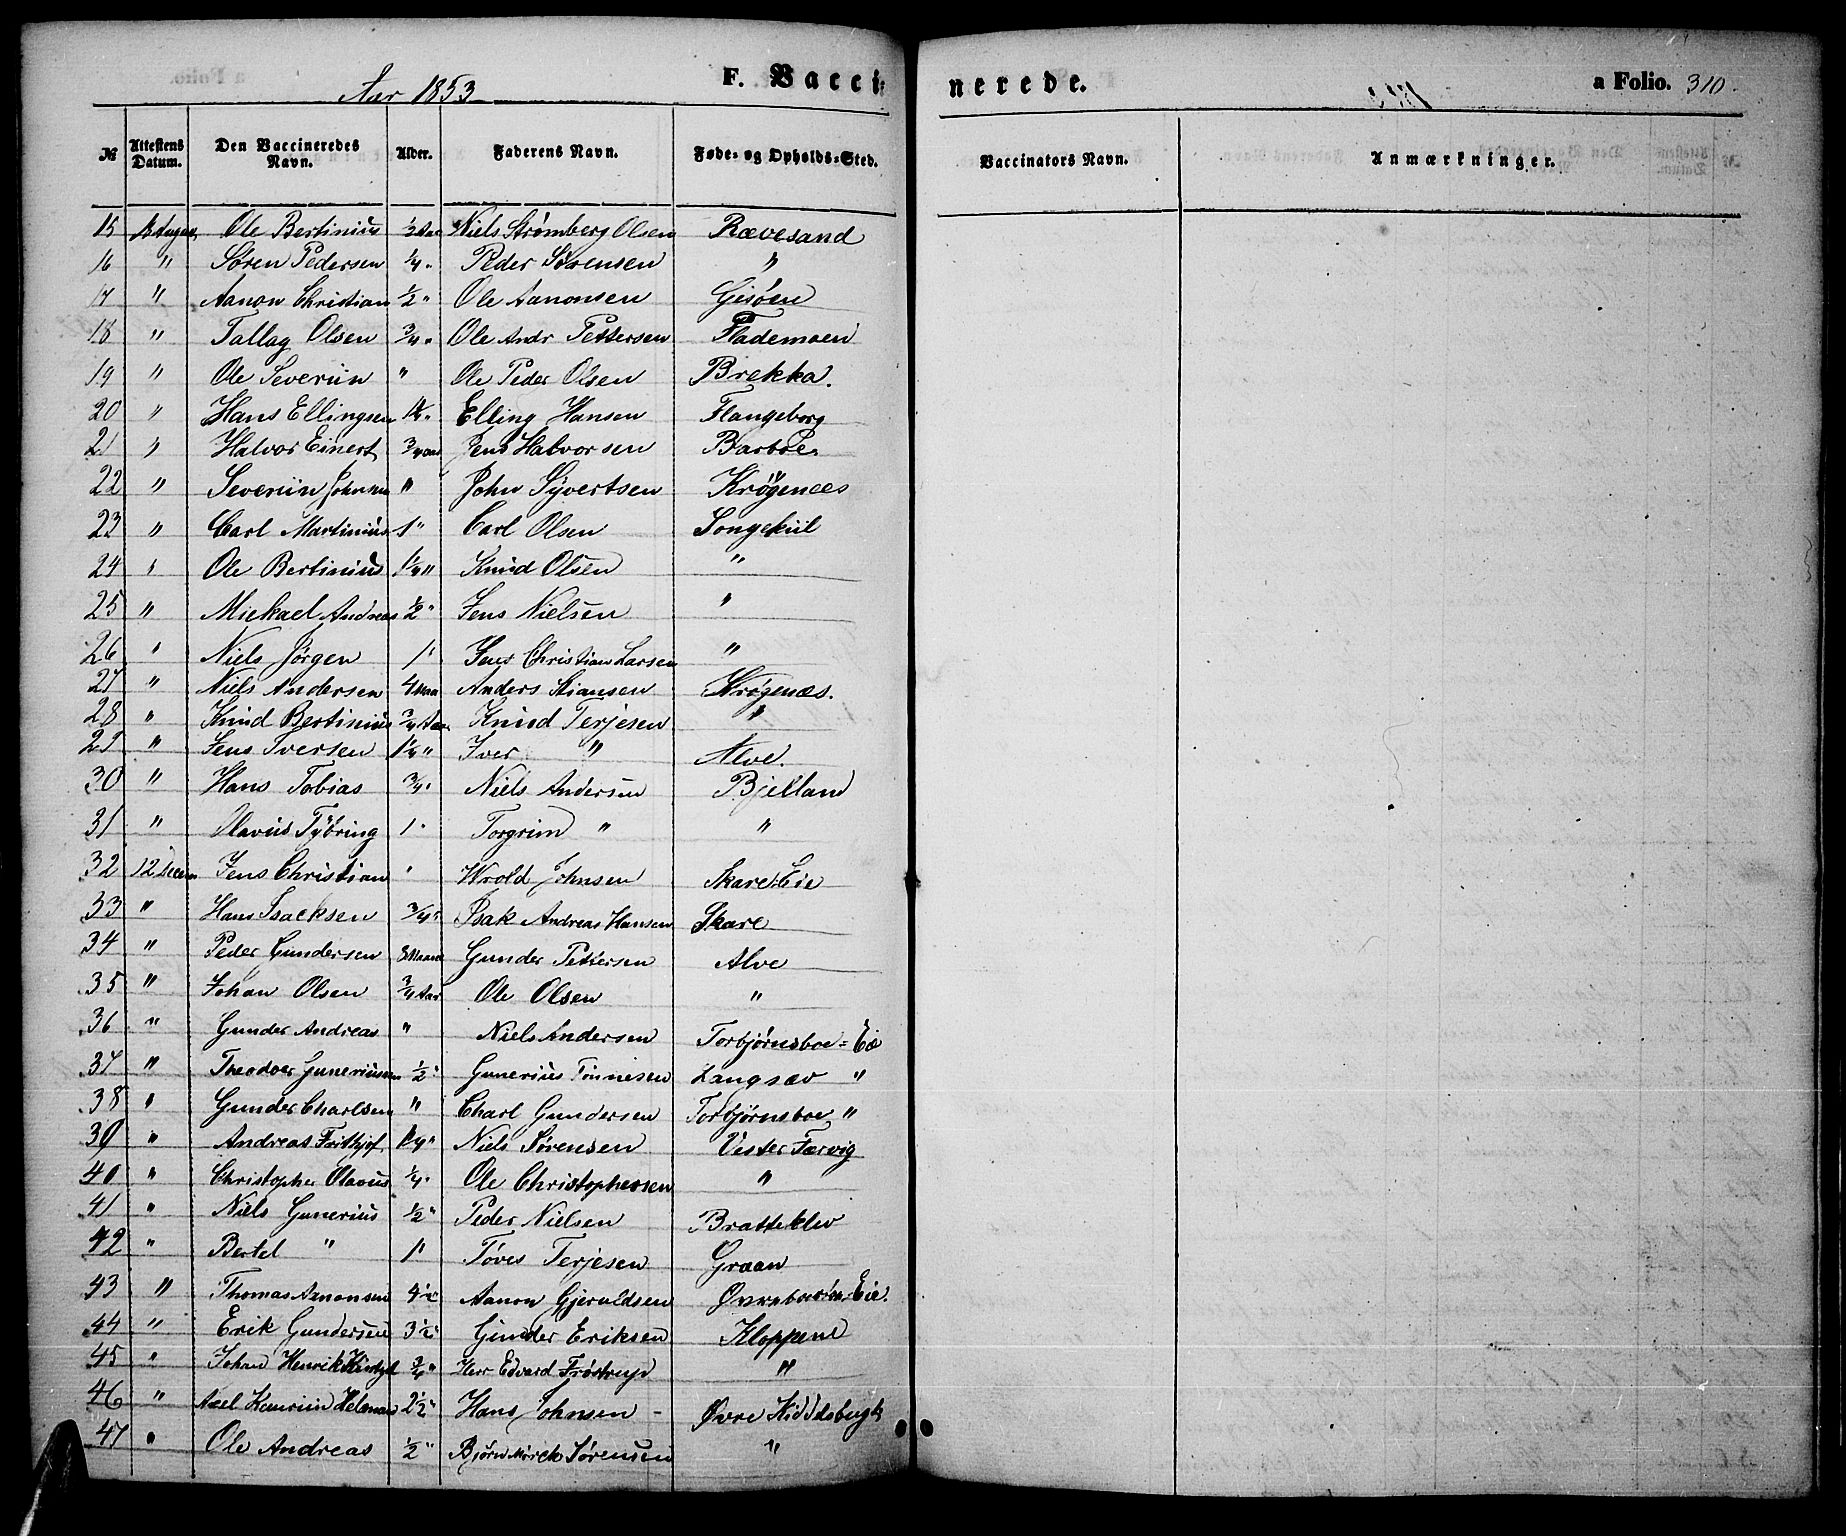 Aar 1853
F. Vacci-
nerede.
a Folio. 310.
№ Attestens Datum. Den Vaccineredes Navn. Alder. Faderens Navn. Føde- og Opholds-Sted. Vaccinators Navn. Anmærkninger.
15 Ole Bertinius 1/2 Aar Niels Strømberg Olsen Rævesand
16 " Søren Pedersen 1/4 " Peder Sørensen "
17 " Aanon Christian 1/2 " Ole Aanonsen Gisøen
18 " Tallag Olsen 3/4 " Ole Andr Pettersen Flademoen
19 " Ole Severin " Ole Peder Olsen Brekka.
20 " Hans Ellingsen Elling Hansen Flangeborg
21 " Halvor Einert 3/4 Aar Jens Halvorsen Barboe
22 " Severin Johnsen " John Syvertsen Krøgenæs
23 " Carl Martinius 1 " Carl Olsen Songekiil
24 " Ole Bertinius 1 1/4 " Knud Olsen "
25 " Mickael Andreas 1/2 " Jens Nielsen "
26 " Niels Jørgen 1 " Jens Christian Larsen "
27 " Niels Andersen 4 Maa Anders Stiansen Krøgenæs.
28 " Knud Bertinius 3/4 Aar Knud Terjesen "
29 " Jens Iversen 1 1/4 " Iver " Alve.
30 " Hans Tobias 3/4 " Niels Andersen Bjelland
31 " Olavus Tybring 1 " Torgrim " "
32 12 Decem Jens Christian " Wrold Johnsen Skare Eie
33 " Hans Isacksen 3/4 " Isak Andreas Hansen Skare
34 " Peder Gundersen 8 Maane Gunder Pettersen Alve
35 " Johan Olsen 3/4 Aar Ole Olsen "
36 " Gunder Andreas " Niels Andersen Torbjørnsboe-Eie
37 " Theodor Guneriusen 1/2 " Gunerius Tønnesen Langsæv "
38 " Gunder Charlsen " Charl Gundersen Torbjørnsboe "
39 " Andreas Frithjof 1 1/4 " Niels Sørensen Vester Færvig
40 " Christopher Olavus 1/4 " Ole Christophersen "
41 " Niels Gunerius 1/2 " Peder Nielsen Bratteklev
42 " Bertel " 1 " Tøves Terjesen Graan
43 " Thomas Aanonsen 4 1/2 Aanon Gjeruldsen Eie.
44 " Erik Gundersen 3 1/2 " Gunder Eriksen Kloppene
45 " Johan Henrik 3/4 " Herr Edvard Frøstrup "
46 " Axel 2 1/2 " Hans Johnsen - Øvre
47 " Ole Andreas 1/2 " Bjørn Mørch Sørensen "